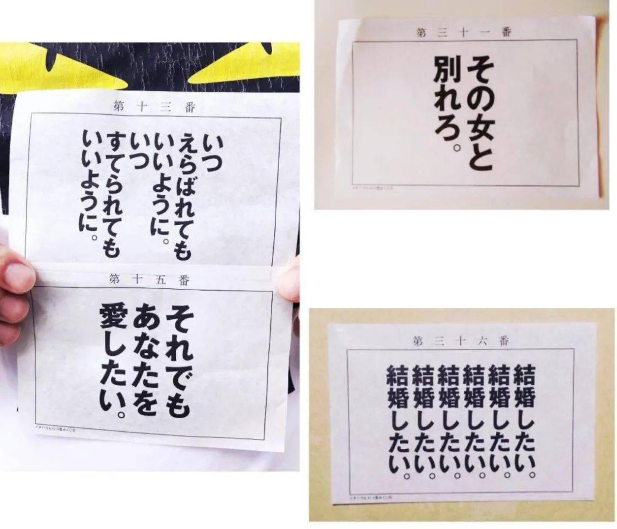 第十三番
いつ
えらばれても
いいように。
いつ
すてられても
いいように。
第十五番
それでも
あなたを
愛したい。
第三十一番
その女と
別れろ。
第三十六番
結婚したい。
結婚したい。
結婚したい。
結婚したい。
結婚したい。
結婚したい。